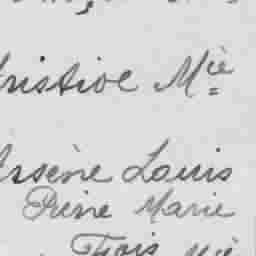 hristive Mie
Arsène Louis
Pierre Marie
Frois Mie